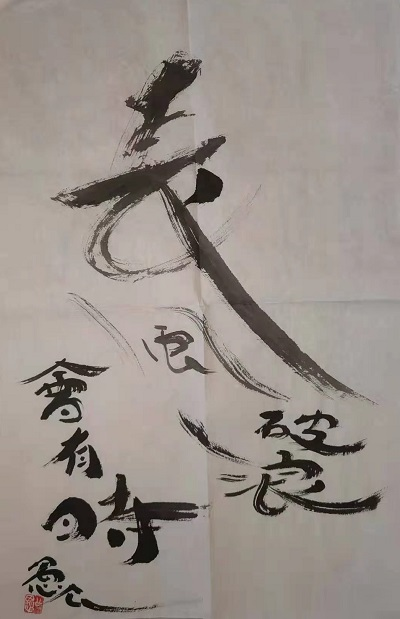 長風
破浪
會有
時
愚公